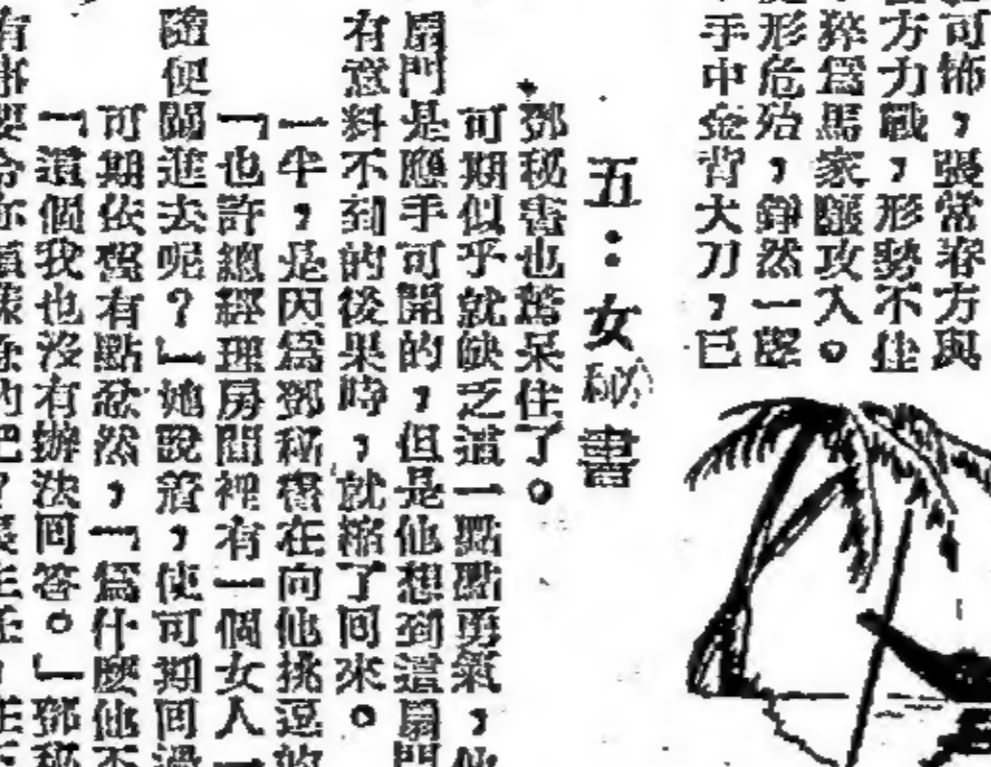 可怖，張常春方與
方力戰，形勢不佳
猝爲馬家驪攻入。
形危殆，錚然一聲
手中金背大刀，已
五：女秘書
鄧秘書也驚呆住了。
可期似乎就缺乏這一點點勇氣，他
扇門是應手可開的，但是他想到這扇門
有意料不到的後果時，就縮了回來。
一半，是因爲鄧秘書在向他挑逗的
「也許總經理房間裡有一個女人一
隨便闖進去呢？」她說着，使可期回過
可期依舊有點忿然，「爲什麼他不
「這個我也沒有辦法回答。」鄧秘